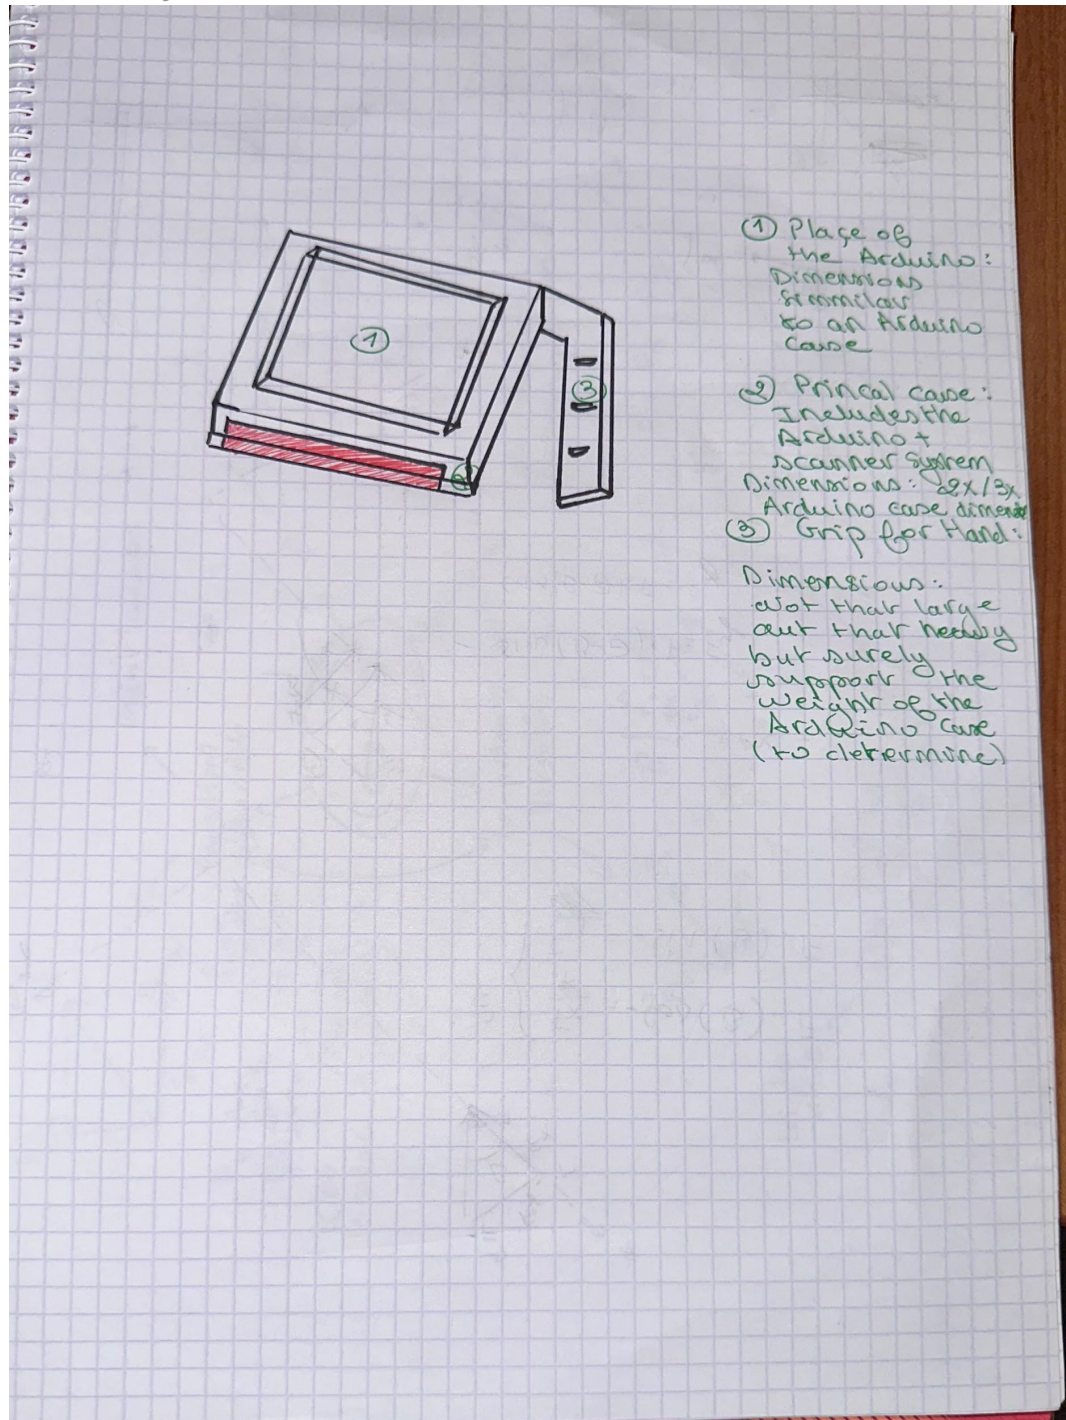 ① Place of
the Arduino:
Dimensions
simmilar
to an Arduino
case
② Princal case:
Includes the
Arduino +
scanner system
Dimensions: 2x/3x
Arduino case dimens
③ Grip for Hand:
Dimensions:
Not that large
out that heavy
but surely
support the
weight of the
Arduino case
(to determine)
①
③
②